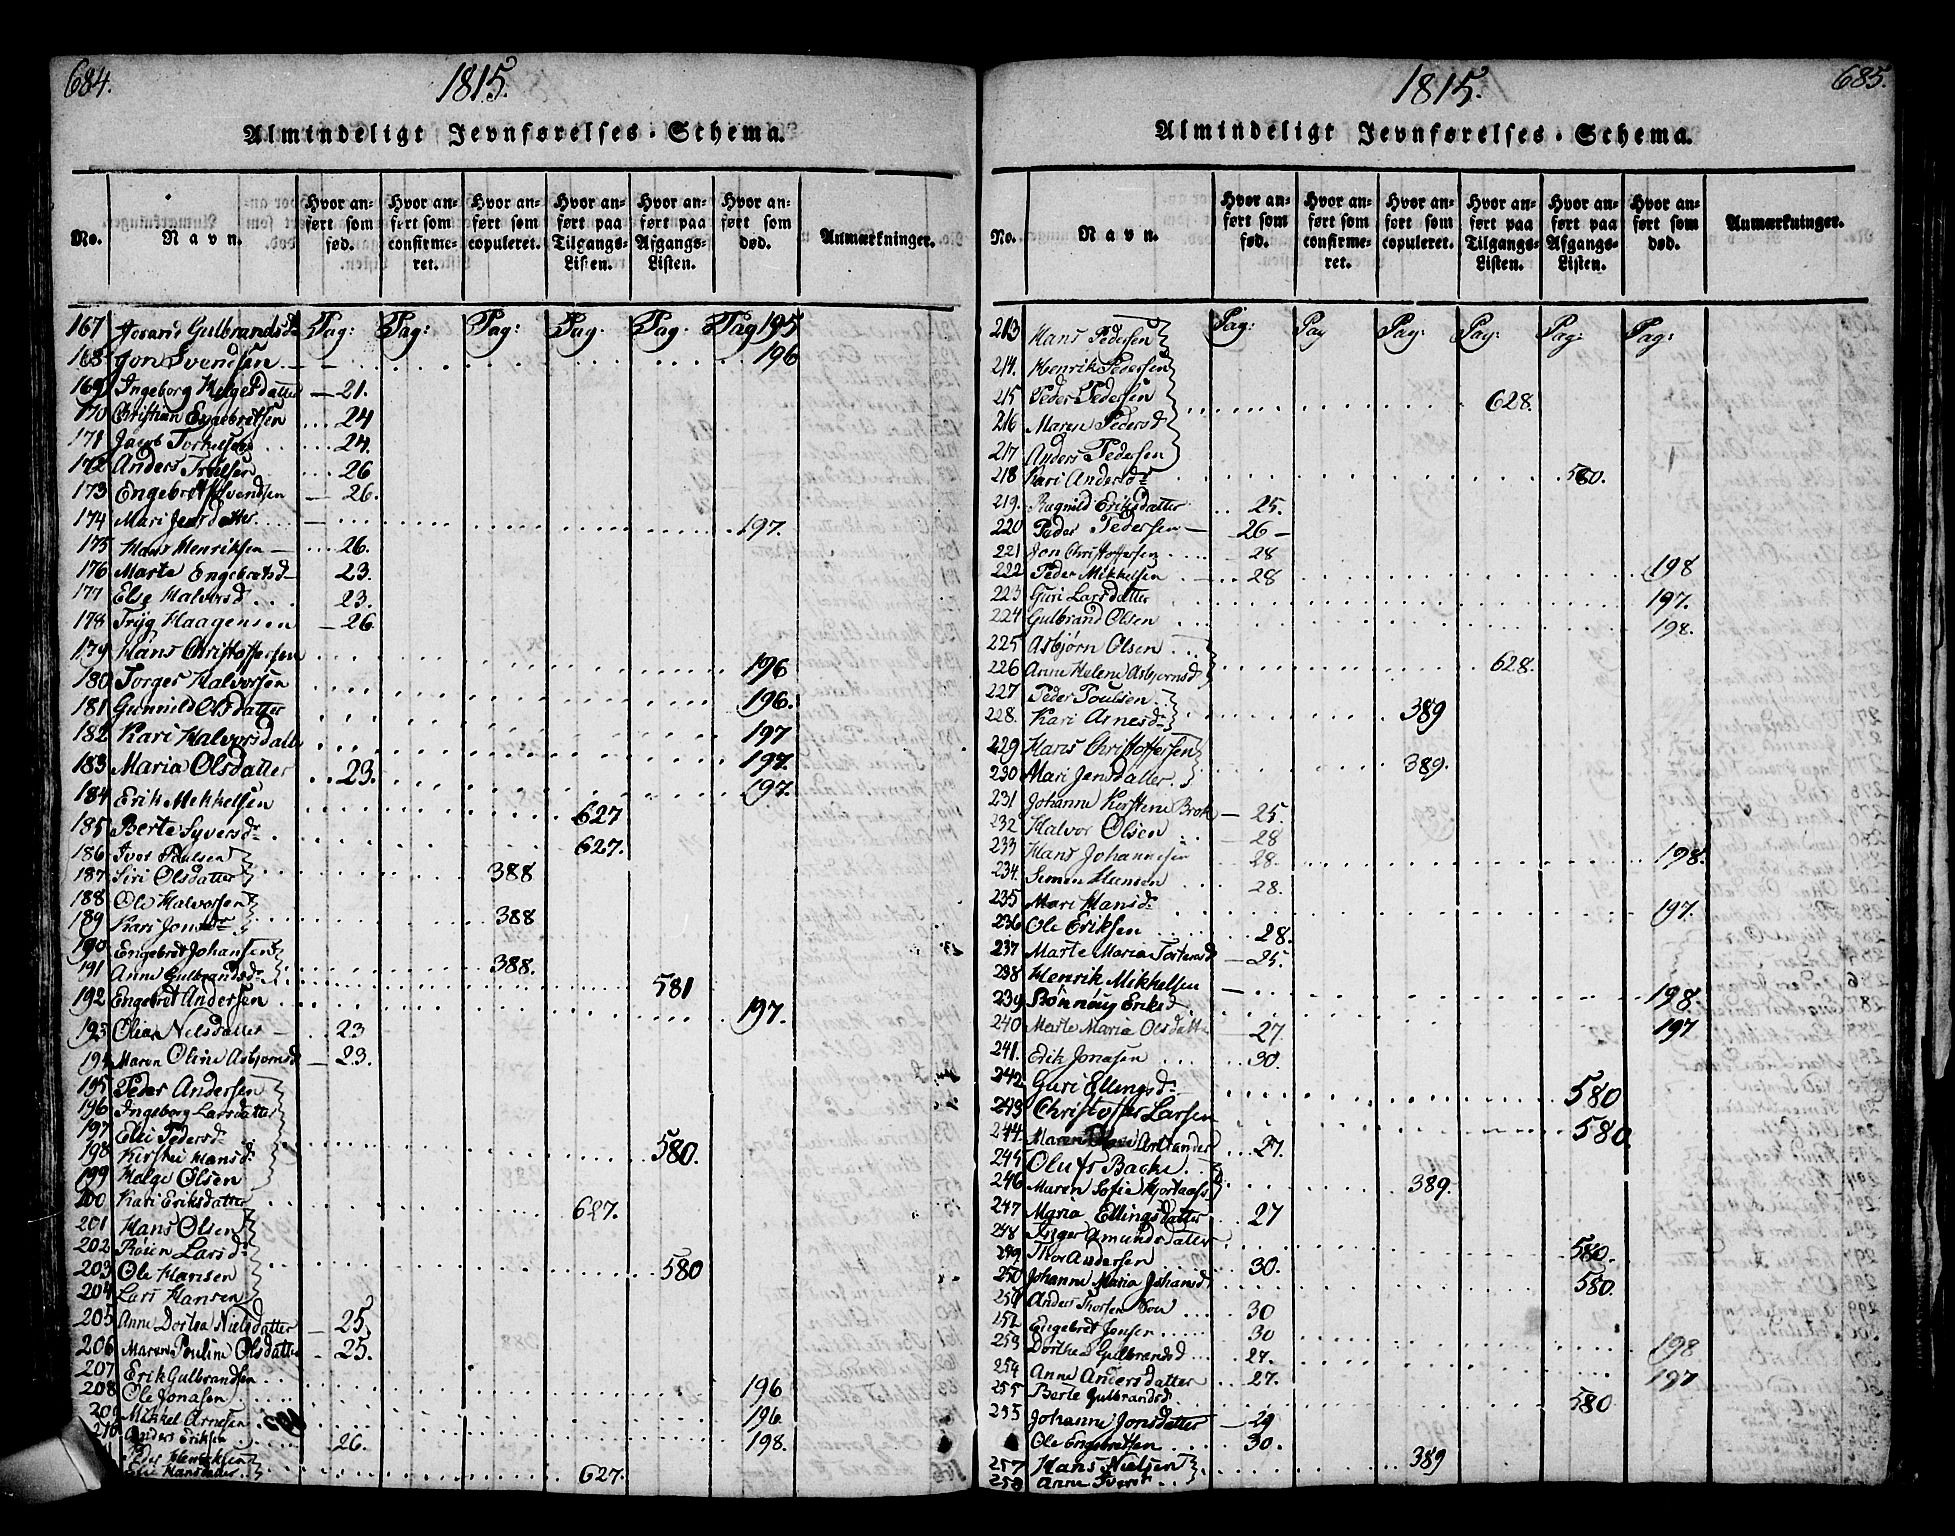 684.
1815.
Almindeligt Jevnførelses-Schema.
No. Navn. Hvor anført som fød. Hvor anført som confirmeret. Hvor anført som copuleret. Hvor anført paa Tilgangs-Listen. Hvor anført paa Afgangs-Listen. Hvor anført som død. Anmærkninger.
167 Gulbrandsd Pag: Pag: Pag: Pag. Pag. Pag 195
168 Jon Svendsen 196
169 Ingeborg Helgesdatter 21.
170 Christian Engebretsen 24
171 Jacob Torkelsen 24.
172 Anders Troelsen 26
173 Engebret Svendsen 26.
174 Mari Jensdatter 197.
175 Hans Henriksen 26.
176 Marte Engebretsd 23.
177 Else Halvorsd 23.
178 Tryg Haagensen 26
179 Hans Christoffersen 196
180 Torger Halvorsen 196.
181 Gunnild Olsdatter 197
182 Kari Halvorsdatter 197.
183 Maria Olsdatter 23. 197.
184 Erik Mekkelsen 627
185 Berte Syversdr 627.
186 Iver Poulsen
187 Siri Olsdatter 388
188 Ole Halvorsen
189 Kari Jonsdr 388
190 Engebret Johansen
191 Anne Gulbrandsdr 388.
192 Engebret Andersen 581
197.
193 Olia Nielsdatter 23
194 Maren Oline Asbjørnsd 23.
195 Peder Andersen
196 Ingeborg Larsdatter
197 Elie Pedersdr
198 Kirstie Hansdr 580.
199 Helge Olsen
200 Kari Eriksdatter 627.
201 Hans Olsen
202 Røien Larsdr
203 Ole Hansen 580
204 Lars Hansen
205 Anne Dortea Nielsdatter 25.
206 Maren Pouline Olsdatter 25.
207 Erik Gulbrandsen 196
208 Ole Jonasen 196
209 Mikkel Arnesen 198.
210 Anders Eriksen 26.
Peder Henriksen
Elie Hansdatter 627.
685.
1815.
Almindeligt Jevnførelses-Schema.
No. Navn. Hvor anført som fød. Hvor anført som confirmeret. Hvor anført som copuleret. Hvor anført paa Tilgangs-Listen. Hvor anført paa Afgangs-Listen. Hvor anført som død. Anmærkninger.
213 Hans Pedersen Pag: Pag Pag: Pag: Pag: Pag:
214. Henrik Pedersen
215 Peder Pedersen 628.
216 Maren Pedersd
217 Anders Pedersen
218 Kari Andersdr 580.
219. Ragnild Eriksdatter 25.
220 Peder Pedersen 26
221 Jon Christoffersen 28
222 Peder Mikkelsen 28 198
223 Guri Larsdatter 197.
224 Gulbrand Olsen 198.
225 Asbjørn Olsen
226 Anne Helene Asbjørnsd 628.
227 Peder Poulsen
228. Kari Arnesdr 389
229 Hans Christoffersen
230 Mari Jensdatter 389.
231 Johanne Kirstene Brok 25.
232 Halvor Olsen 28
233 Hans Johannesen 28. 198.
234. Simen Hansen 28.
235 Mari Hansdr 197.
236 Ole Eriksen 28.
237 Marte Maria Torstensd 25.
238 Henrik Mikkelsen 198.
239 Rønnoug Eriksd 197
240 Marte Maria Olsdatter 27.
241. Erik Jonasen 30.
242 Guri Ellingsdr 580
243 Christoffer Larsen 580
244. Maren 27.
245 Olufs Backe
246 Maren Sofie 389.
247 Maria Ellingsdatter 27
248 Amundsdatter 580.
249 Thor Andersen 30.
250 Johanne Maria Johansdr 580.
251 Anders Thorsten 30
252 Engebret Jensen 30
253 Dorthea Gulbrandsd 27. 198
254 Anne Andersdatter 27. 197
255 Berte Gulbrandsd 580
255 Johanne Jonsdatter 29
Ole Engebretsen 30.
257 Hans Nielsen 389
258 Anne Iversd